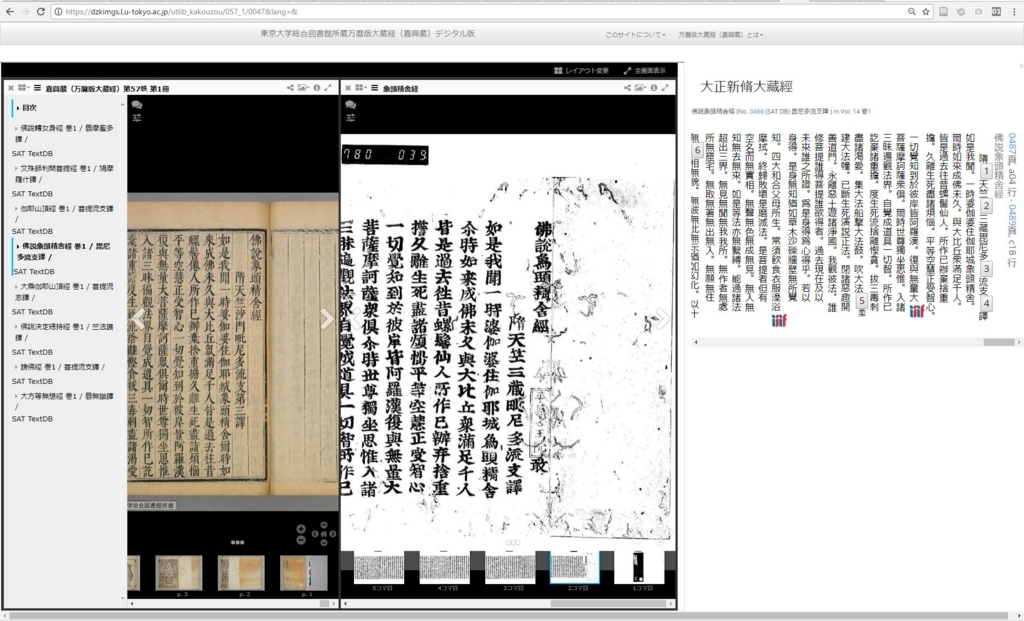 https://dzkimgs.l.u-tokyo.ac.jp/utlib_kakouzou/057_1/0047&lang=&
東京大学総合図書館所蔵万暦版大蔵経（嘉興蔵）デジタル版
このサイトについて
万暦版大蔵経（嘉興蔵）とは
レイアウト変更
全画面表示
嘉興蔵（万暦版大蔵經）第57帙 第1冊
目次
佛説轉女身經 巻1 / 曇摩蜜多譯 /
SAT TextDB
文殊師利問菩提經 巻1 / 鳩摩羅什譯 /
SAT TextDB
伽耶山頂經 巻1 / 菩提流支譯 /
SAT TextDB
佛説象頭精舎經 巻1 / 毘尼多流支譯 /
SAT TextDB
大乘伽耶山頂經 巻1 / 菩提流志譯 /
SAT TextDB
佛説決定總持經 巻1 / 竺法護譯 /
SAT TextDB
謗佛經 巻1 / 菩提流支譯 /
SAT TextDB
大方等無想經 巻1 / 曇無讖譯 /
SAT TextDB
佛説象頭精舍經
隋天竺沙門毗尼多流支第三譯
p.3
p.2
p.1
象頭精舎経
780 039
佛説象頭精舍經
隋天竺三藏毗尼多流支譯
如是我聞一時婆伽婆住伽耶城象頭精舍
尒時如來成佛未久與大比丘衆滿足千人
皆是過去往昔螺髻仙人所作已辦弃捨重
擔久離生死盡諸煩惱平等空慧正受智心
一切覺知到於彼岸皆阿羅漢復與無量大
菩薩摩訶薩衆俱尒時世尊獨坐思惟入諸
三昧遍觀法界自覺成道具一切智所作已
5コマ目
4コマ目
3コマ目
2コマ目
1コマ目
大正新脩大藏經
佛説象頭精舍經 (No. 0466 (SAT DB) 毘尼多流支譯 ) in Vol. 14 巻1
0487頁 a04 行 - 0489頁 c18 行
佛説象頭精舍經
隋 1 天竺 2 三藏毘尼多 3 流支 4 譯
如是我聞。一時婆伽婆住伽耶城象頭精舍。
爾時如來成佛未久。與大比丘衆滿足千人。
皆是過去往昔螺髻仙人。所作已辦棄捨重
擔。久離生死盡諸煩惱。平等空慧正受智心。
一切覺知到於彼岸皆阿羅漢。復與無量大
菩薩摩訶薩衆俱。爾時世尊獨坐思惟。入諸
三昧遍觀法界。自覺成道具一切智。所作已
訖棄諸重擔。度生死流捨離慳貪。拔三毒刺
盡諸渇愛。集大法船撃大法鼓。吹大法 5 蠡
建大法幢。已斷生死演説正法。閉諸惡趣開
善道門。永離惡土遊諸淨國。我觀彼法。誰
修菩提誰得菩提誰欲得者。過去現在及以
未來誰之所證。爲是身得爲心得乎。若以
身得。是身無知猶如草木沙礫牆壁無所覺
知。四大和合父母所生。常須飲食衣服澡浴
摩拭。終歸敗壞是磨滅法。是菩提者但有
空名而無實相。無聲無色無成無見。無入無
知無去無來。如是等法亦無繋縛。能過諸法
超出三界。無見無聞無我我所。無作者無處
所無窟宅。無取無著無出無入。無願無住
無 6 相無貌。無彼無此無示猶如幻化。以十